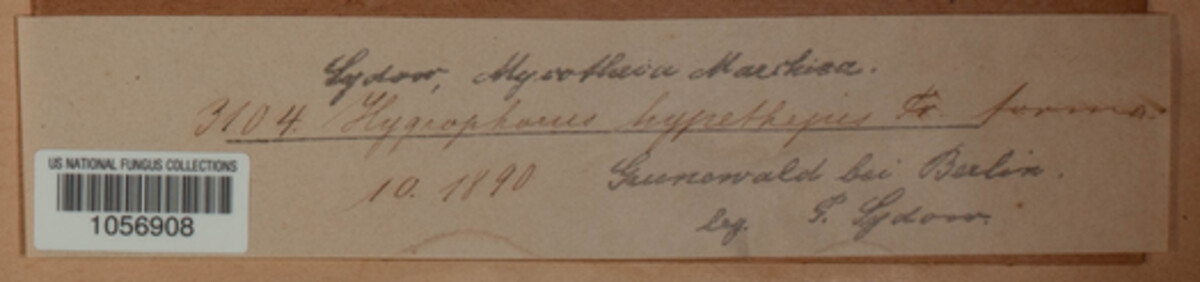 Sydow, Mycotheca Marchica.
3104. Hygrophorus hypothejus Fr. forma.
10. 1890 Grunewald bei Berlin.
leg. P. Sydow.
US NATIONAL FUNGUS COLLECTIONS
1056908